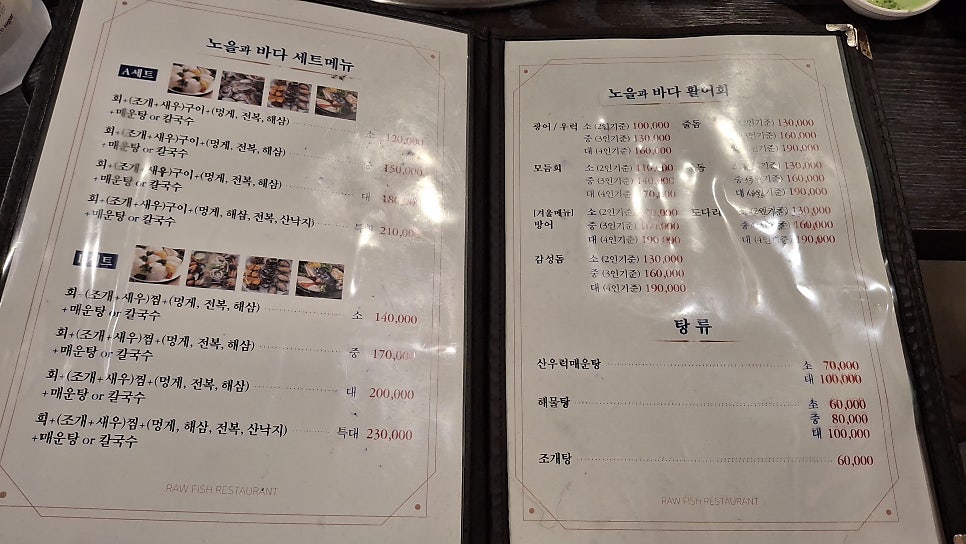 노을과 바다 세트메뉴
A세트
회+(조개+새우)구이+(멍게, 전복, 해삼)
+매운탕 or 칼국수 소 120,000
회+(조개+새우)구이+(멍게, 전복, 해삼)
+매운탕 or 칼국수 중 150,000
회+(조개+새우)구이+(멍게, 전복, 해삼)
+매운탕 or 칼국수 대
회+(조개+새우)구이+(멍게, 해삼, 전복, 산낙지)
+매운탕 or 칼국수 210,000
세트
회+(조개+새우)찜+(멍게, 전복, 해삼)
+매운탕 or 칼국수 소 140,000
회+(조개+새우)찜+(멍게, 전복, 해삼)
+매운탕 or 칼국수 중 170,000
회+(조개+새우)찜+(멍게, 전복, 해삼)
+매운탕 or 칼국수 대 200,000
회+(조개+새우)찜+(멍게, 해삼, 전복, 산낙지)
+매운탕 or 칼국수 특대 230,000
RAW FISH RESTAURANT
노을과 바다 활어회
광어 / 우럭 소 (2인기준) 100,000 줄돔 130,000
중 (3인기준) 130,000 160,000
대 (4인기준) 160,000 190,000
모듬회 소 (2인기준) 110,000 130,000
중 (3인기준) 140,000 160,000
대 (4인기준) 190,000
[겨울메뉴] 소 (2인기준) 도다리 130,000
방어 중 (3인기준) 160,000 160,000
대 (4인기준) 190,000 대 (4인기준) 190,000
감성돔 소 (2인기준) 130,000
중 (3인기준) 160,000
대 (4인기준) 190,000
탕 류
산우럭매운탕 소 70,000
대 100,000
해물탕 소 60,000
중 80,000
대 100,000
조개탕 60,000
RAW FISH RESTAURANT